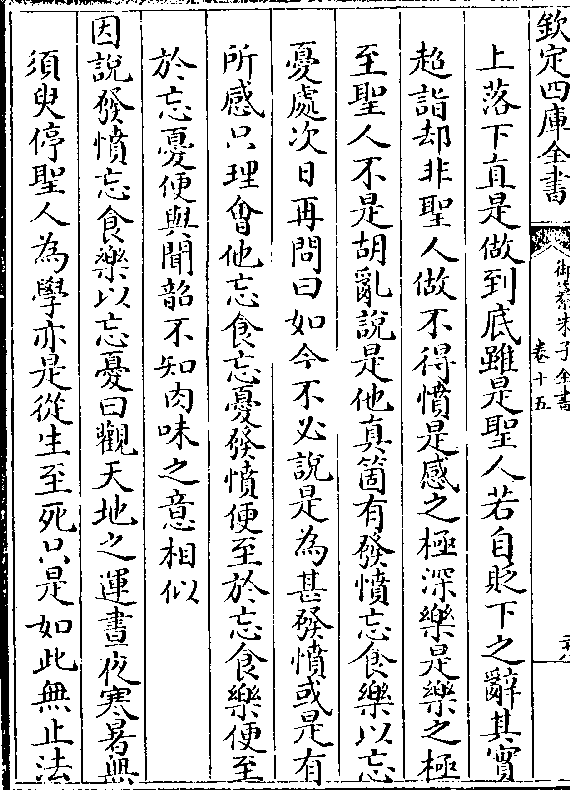 欽定四庫全書
御纂朱子全書
卷十五
上落下直是做到底雖是聖人若自貶下之辭其實
超詣却非聖人做不得憤是感之極深樂是樂之極
至聖人不是胡亂說是他真箇有發憤忘食樂以忘
憂處次日再問曰如今不必說是為甚發憤或是有
所感只理會他忘食忘憂發憤便至於忘食樂便至
於忘憂便與聞韶不知肉味之意相似
因說發憤忘食樂以忘憂曰觀天地之運晝夜寒暑無
須臾停聖人為學亦是從生至死只是如此無止法